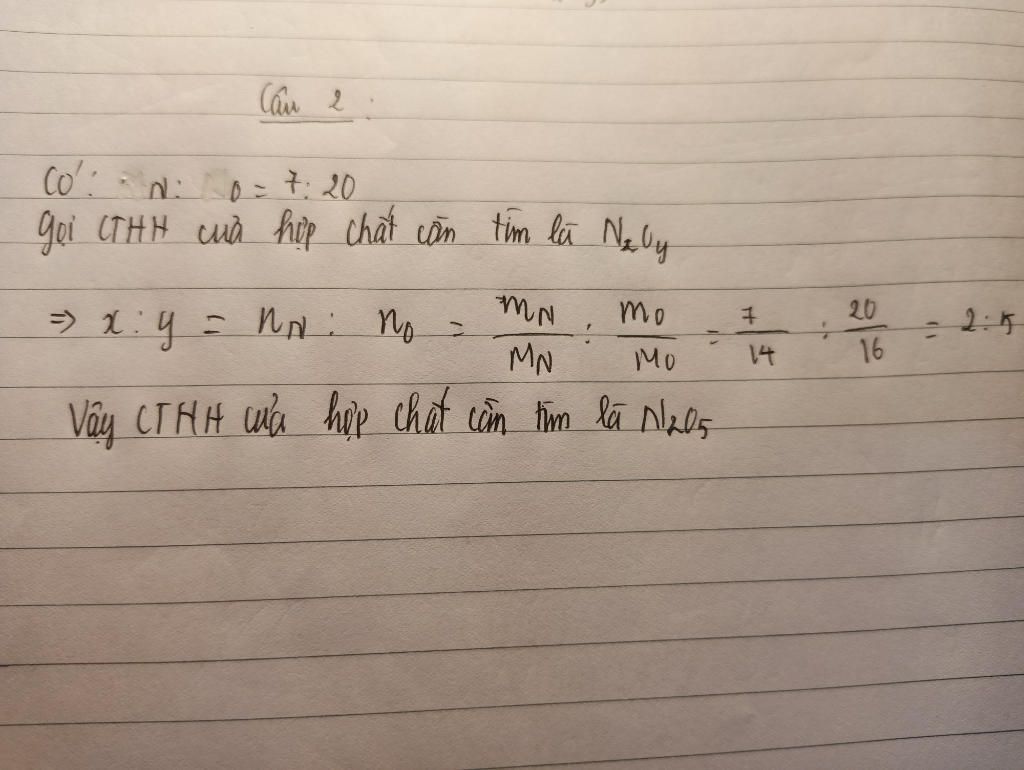 Câu 2 :
Có: N : O = 7 : 20
Gọi CTHH của hợp chất cần tìm là NxOy
=> x : y = nN : nO = mN/MN : mO/MO = 7/14 : 20/16 = 2 : 5
Vậy CTHH của hợp chất cần tìm là N2O5